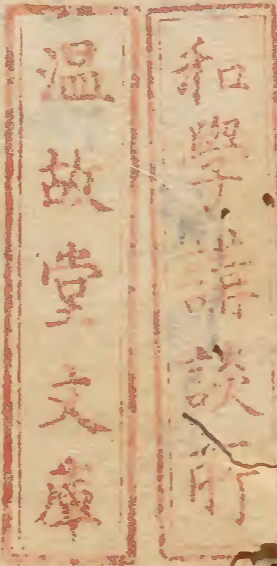 和學講談所
温故堂文庫